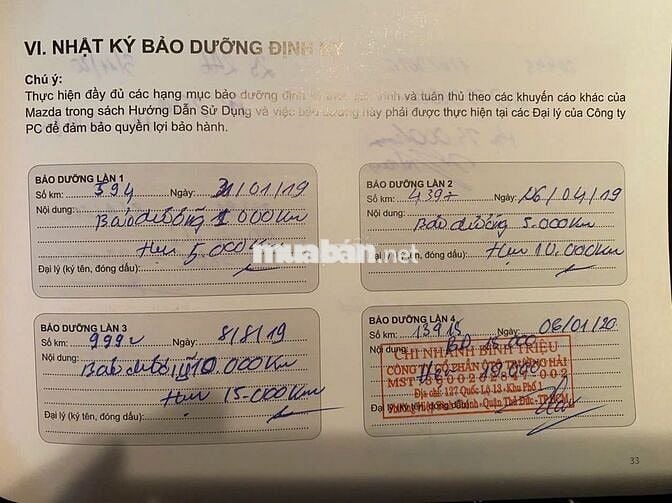 VI. NHẬT KÝ BẢO DƯỠNG ĐỊNH KỲ
Chú ý:
Thực hiện đầy đủ các hạng mục bảo dưỡng định và tuân thủ theo các khuyến cáo khác của
Mazda trong sách Hướng Dẫn Sử Dụng và việc bảo dưỡng này phải được thực hiện tại các Đại lý của Công ty
PC để đảm bảo quyền lợi bảo hành.
BẢO DƯỠNG LẦN 1
Số km: 394 Ngày: 31/01/19
Nội dung: Bảo dưỡng 1000Km
Hẹn 5.000Km
Đại lý (ký tên, đóng dấu):
BẢO DƯỠNG LẦN 2
Số km: 4397 Ngày: 26/04/19
Nội dung: Bảo dưỡng 5.000Km
Hẹn 10.000Km
Đại lý (ký tên, đóng dấu):
muaban.net
BẢO DƯỠNG LẦN 3
Số km: 9992 Ngày: 8/8/19
Nội dung: Bảo dưỡng 10.000Km
Hẹn 15.000Km
Đại lý (ký tên, đóng dấu):
BẢO DƯỠNG LẦN 4
Số km: 13915 Ngày: 06/01/20
Nội dung: BD 15.000
CHI NHÁNH BÌNH TRIỆU
CÔNG TY CỔ PHẦN Ô TÔ TRƯỜNG HẢI
MST
Địa chỉ: 127 Quốc Lộ 13, Khu Phố 1
Quận Thủ Đức - TP.HCM
Đại lý (ký tên, đóng dấu):
33